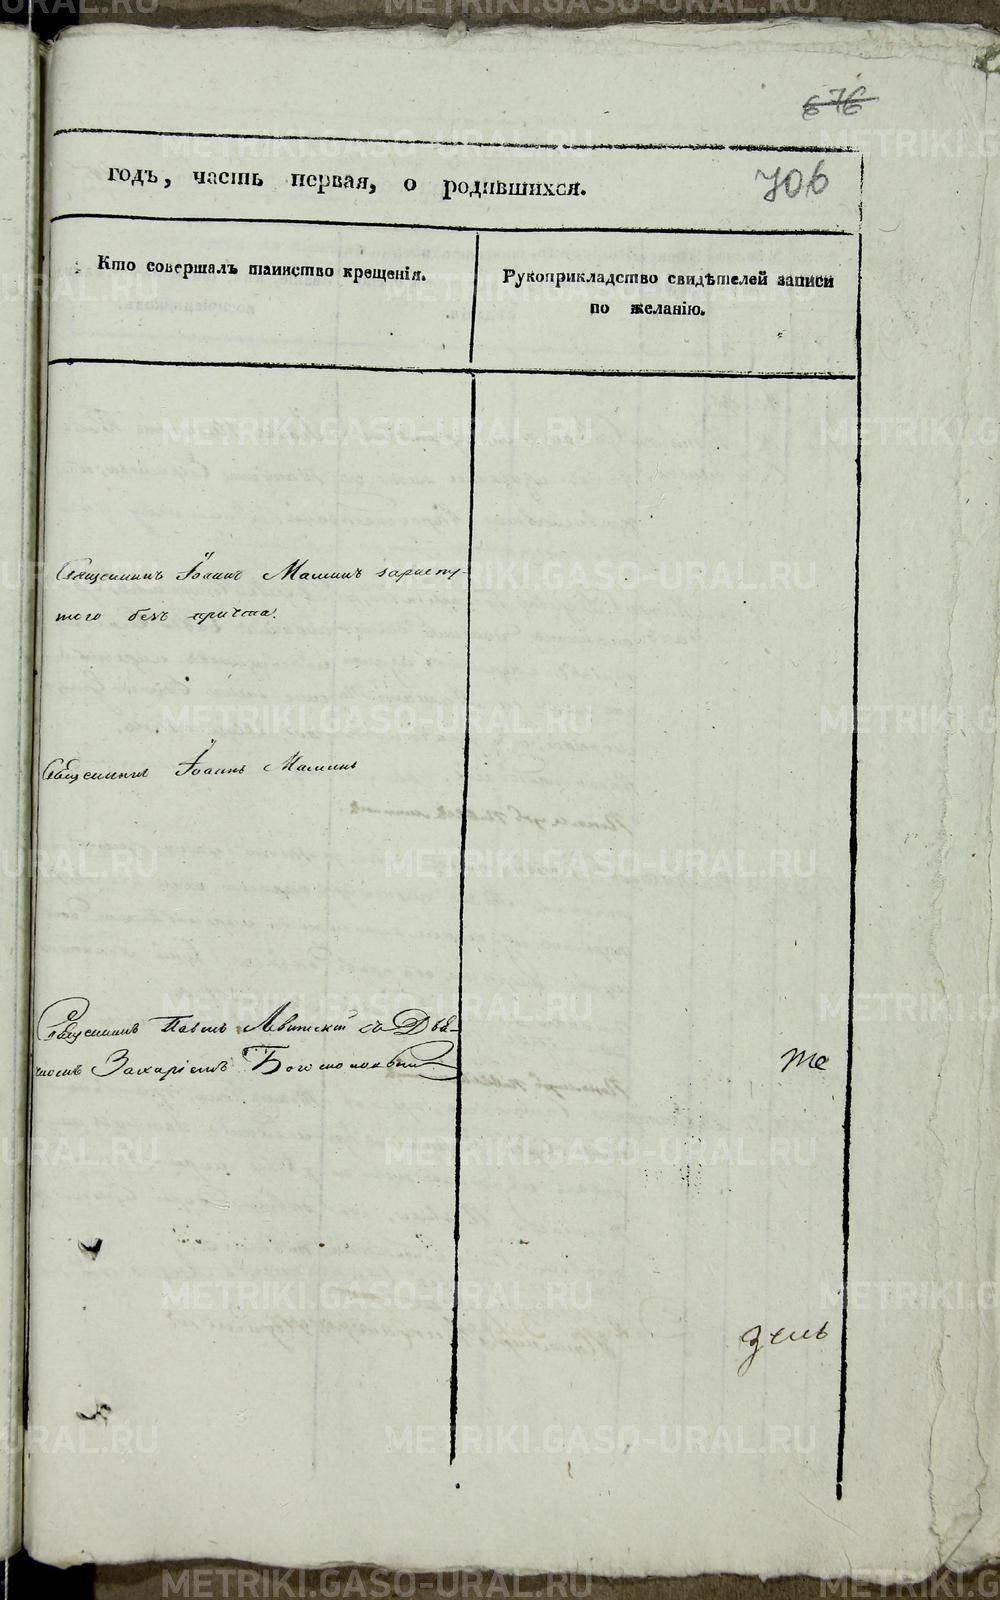 676
706
годъ, часть первая, о родившихся.
Кто совершалъ таинство крещенія.
Рукоприкладство свидѣтелей записи
по желанію.
Священникъ Іоаннъ Маминъ
того безъ причта.
Священникъ Іоаннъ Маминъ
Священникъ Павелъ Левитскій съ Дья-
Захаріемъ
те
METRIKI.GASO-URAL.RU